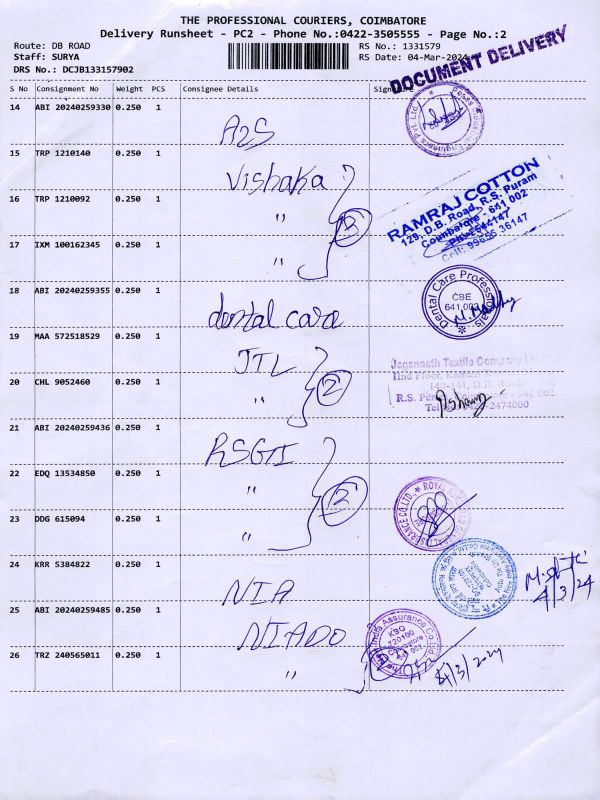 THE PROFESSIONAL COURIERS, COIMBATORE
Delivery Runsheet - PC2 - Phone No.:0422-3505555 - Page No.:2
Route: DB ROAD RS No.: 1331579
Staff: SURYA RS Date: 04-Mar-2024
DRS No.: DCJB133157902
DOCUMENT DELIVERY
S No Consignment No Weight PCS Consignee Details Signature
14 ABI 20240259330 0.250 1
A2S
15 TRP 1210140 0.250 1
Vishaka
16 TRP 1210092 0.250 1
"
3
RAMRAJ COTTON
129, D.B. Road, R.S. Puram
Coimbatore - 641 002
Cell: 99655 36147
17 IXM 100162345 0.250 1
"
18 ABI 20240259355 0.250 1
dental care
Dental Care Professionals
CBE
641 002
19 MAA 572518529 0.250 1
JTL
Jagannath Textile Company
IInd Floor,
140-141, D.B. Road,
20 CHL 9052460 0.250 1
"
2
21 ABI 20240259436 0.250 1
RSGI
22 EDQ 13534850 0.250 1
"
2
23 DDG 615094 0.250 1
"
24 KRR 5384822 0.250 1
NIA
4/3/24
25 ABI 20240259485 0.250 1
NIADO
India Assurance Co.
KBO
720100
26 TRZ 240565011 0.250 1
"
4/3/2024